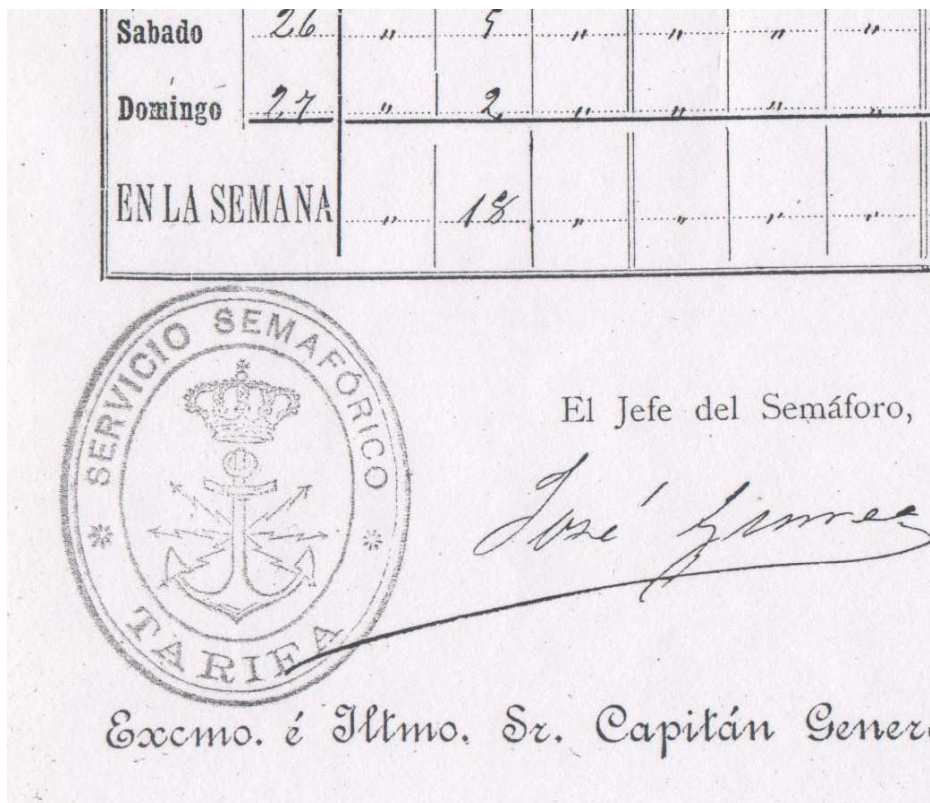 Sabado 26 " 5 " " " "
Domingo 27 " 2 " " " "
EN LA SEMANA " 18 " " " "
SERVICIO SEMAFÓRICO
TARIFA
El Jefe del Semáforo,
José
Excmo. é Iltmo. Sr. Capitán Gener